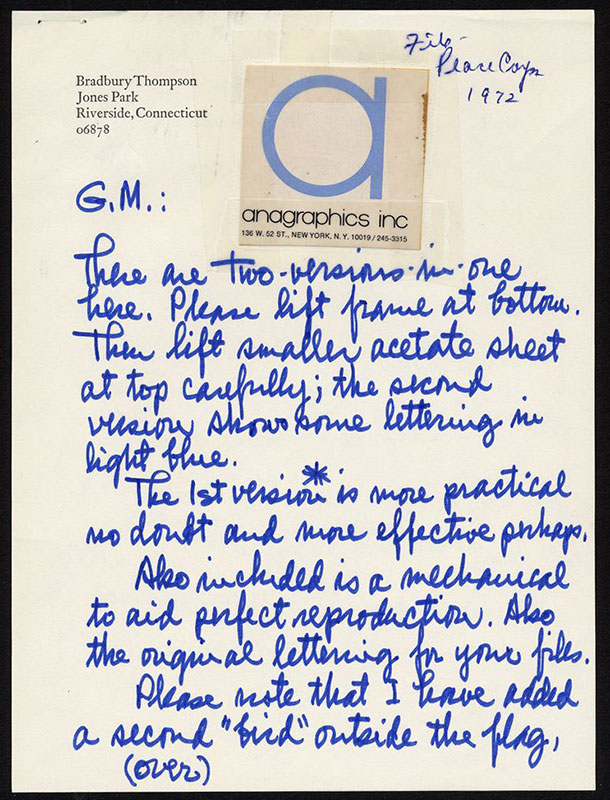 File-
Peace Corps
1972
Bradbury Thompson
Jones Park
Riverside, Connecticut
06878
a
anagraphics inc
136 W. 52 ST., NEW YORK, N. Y. 10019 / 245-3315
G.M.:
There are two-versions-in-one
here. Please lift frame at bottom.
Then lift smaller acetate sheet
at top carefully; the second
version shows some lettering in
light blue.
The 1st version* is more practical
no doubt and more effective perhaps.
Also included is a mechanical
to aid perfect reproduction. Also
the original lettering for your files.
Please note that I have added
a second "bird" outside the flag,
(over)